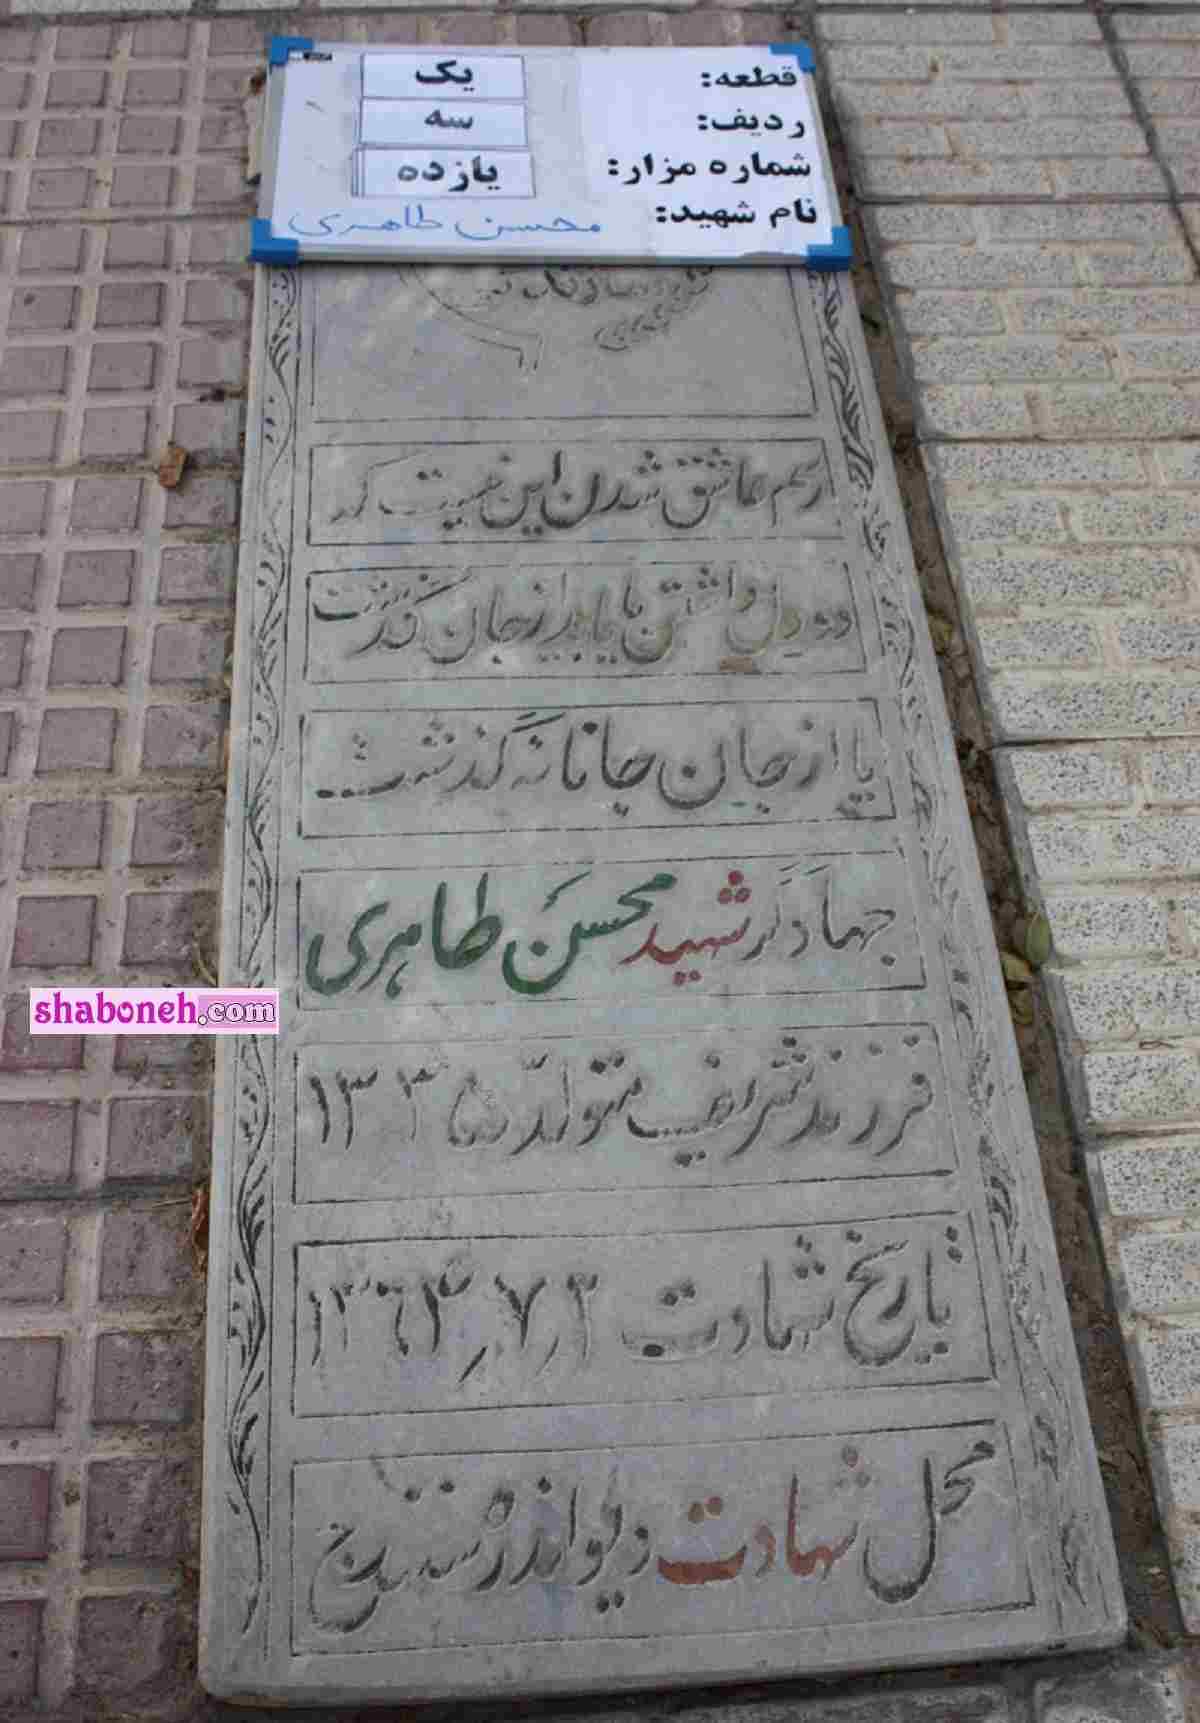 قطعه: یک
ردیف: سه
شماره مزار: یازده
نام شهید: محسن طاهری
رسم عاشق شدن این نیست که
دو دل داشتن یا باید از جان گذشت
یا از جان جانانه گذشت
جهادگر شهید محسن طاهری
فرزند شریف متولد ۱۳۳۵
تاریخ شهادت ۱۳۶۴/۷/۲
محل شهادت دیواندره سنندج
shaboneh.com